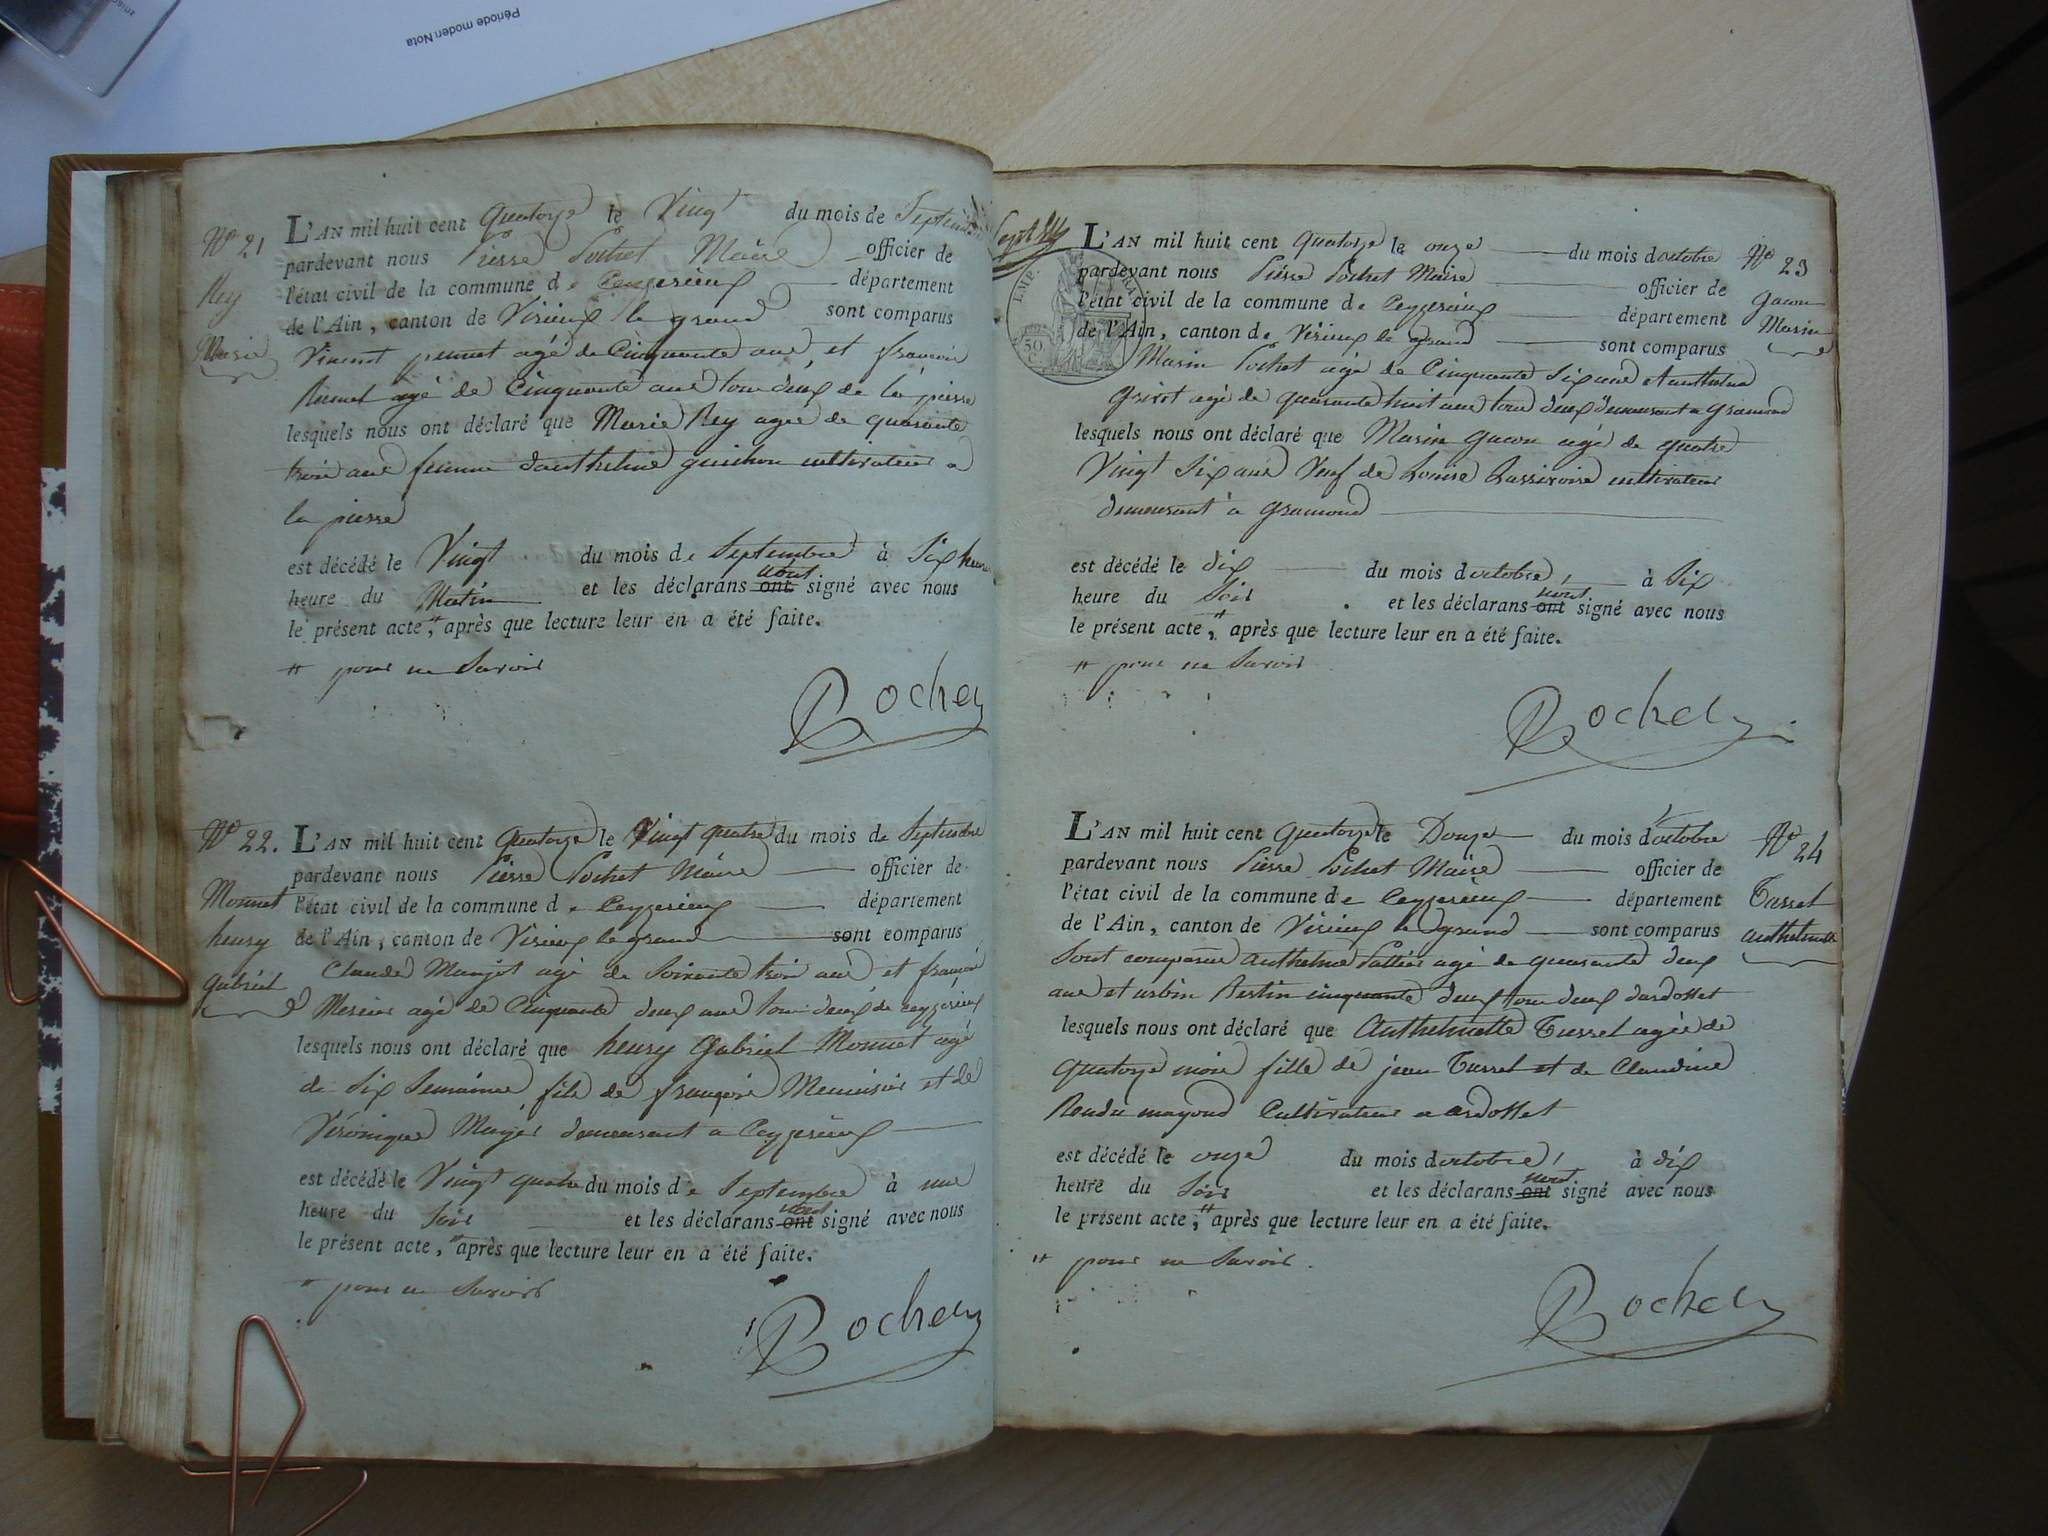 Période moden Nota
N° 21
Rey
Marie
L'AN mil huit cent quatorze le Vingt du mois de Septembre
pardevant nous Pierre Pochet Maire officier de
l'état civil de la commune de Ceyzerieux département
de l'Ain, canton de Virieux le grand sont comparus
Vincent agé de Cinquante ans, et françois
agé de Cinquante ans tous deux de la pierre
lesquels nous ont déclaré que Marie Rey agée de quarante
trois ans femme danthelme guichon cultivateur a
la pierre
est décédé le Vingt du mois de Septembre à Six heures
heure du Matin et les déclarans ont nont signé avec nous
le présent acte, # après que lecture leur en a été faite.
# pour ne Savoir
Pochet
N° 22.
Monnet
henry
gabriel
L'AN mil huit cent quatorze le Vingt quatre du mois de Septembre
pardevant nous Pierre Pochet Maire officier de
l'état civil de la commune de Ceyzerieux département
de l'Ain, canton de Virieux le grand sont comparus
Claude agé de Soixante trois ans et françois
Mercier agé de Cinquante deux ans tous deux de ceyzerieux
lesquels nous ont déclaré que henry Gabriel Monnet agé
de Six Semaines fils de françois Menuisier et de
Véronique demeurant a Ceyzerieux
est décédé le Vingt quatre du mois de Septembre à une
heure du Soir et les déclarans ont nont signé avec nous
le présent acte, # après que lecture leur en a été faite.
# pour ne Savoir
Pochet
L'AN mil huit cent quatorze le onze du mois doctobre
pardevant nous Pierre Pochet Maire officier de
l'état civil de la commune de Ceyzerieux département
de l'Ain, canton de Virieux le grand sont comparus
Marin Pochet agé de Cinquante Six ans et anthelme
agé de quarante huit ans tous deux demeurant a gramond
lesquels nous ont déclaré que Marin gacon agé de quatre
Vingt Six ans Veuf de Louise cultivateur
demeurant à gramond
est décédé le dix du mois doctobre, à Six
heure du Soir et les déclarans ont nont signé avec nous
le présent acte, # après que lecture leur en a été faite.
# pour ne Savoir
Pochet
N° 23
gacon
Marin
L'AN mil huit cent quatorze le Douze du mois d'octobre
pardevant nous Pierre Pochet Maire officier de
l'état civil de la commune de Ceyzerieux département
de l'Ain, canton de Virieux le grand sont comparus
Sont comparus anthelme agé de quarante deux
ans et urbin cinquante deux tous deux dardosset
lesquels nous ont déclaré que Anthelmette Turrel agée de
quatorze mois fille de jean Turrel et de Claudine
Rendu mayond Cultivateur a ardosset
est décédé le onze du mois doctobre, à dix
heure du Soir et les déclarans ont nont signé avec nous
le présent acte, # après que lecture leur en a été faite.
# pour ne Savoir.
Pochet
N° 24
Turrel
anthelmette